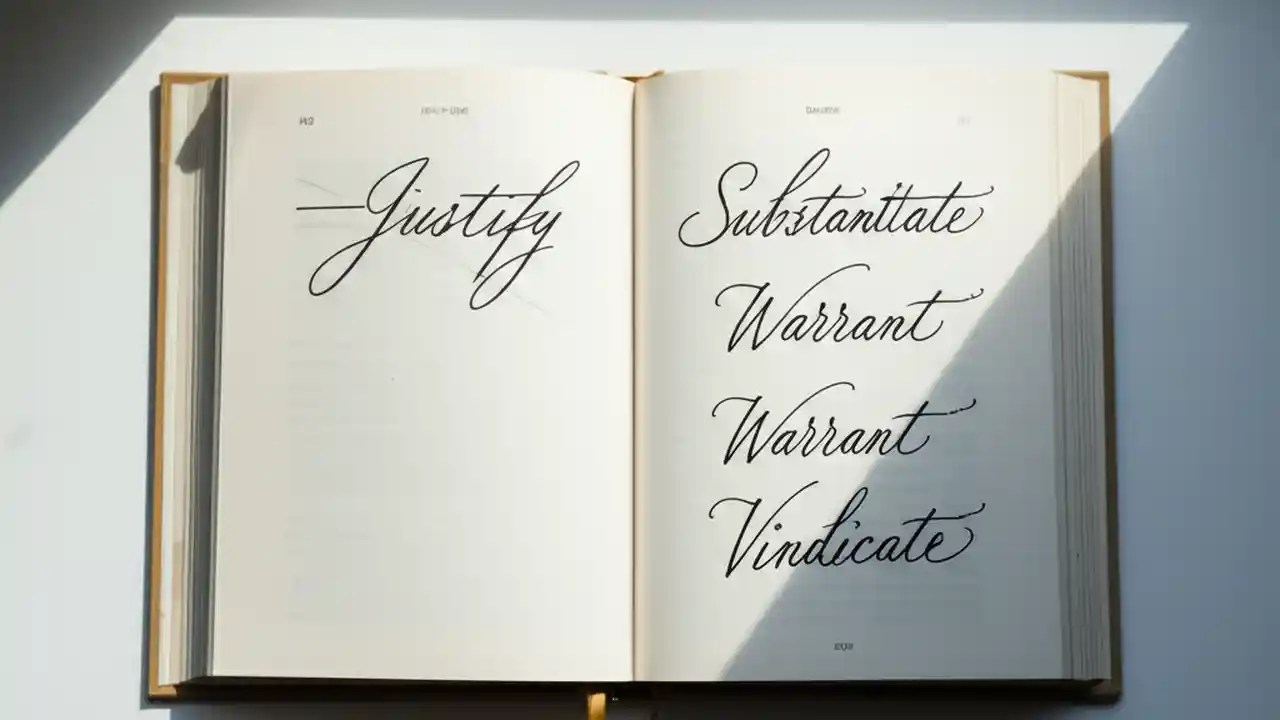 —Justify
Substantitate
Warrant
Warrant
Vindicate